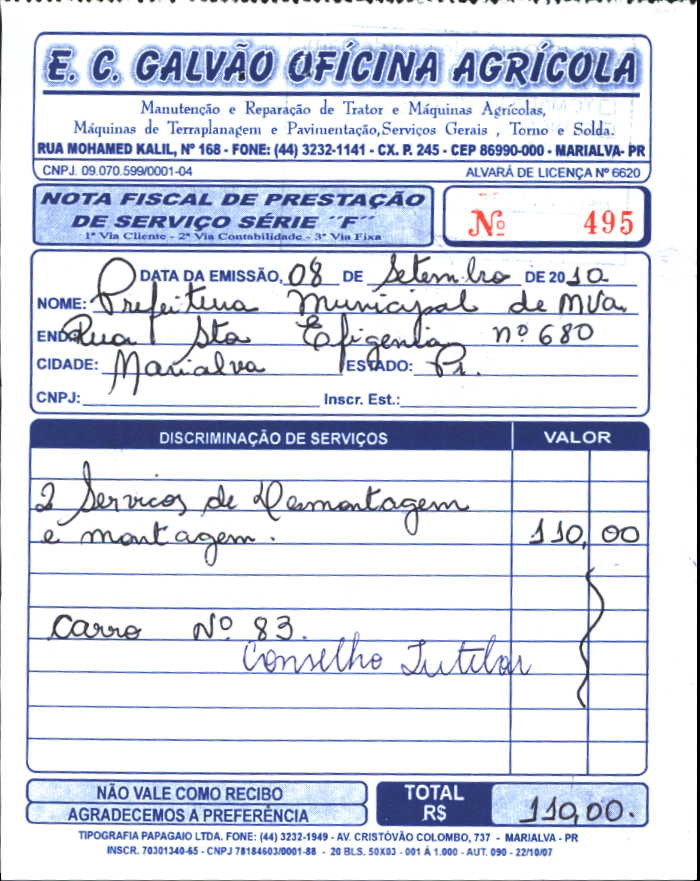 E. C. GALVÃO OFÍCINA AGRÍCOLA
Manutenção e Reparação de Trator e Máquinas Agrícolas,
Máquinas de Terraplanagem e Pavimentação,Serviços Gerais , Torno e Solda.
RUA MOHAMED KALIL, Nº 168 - FONE: (44) 3232-1141 - CX. P. 245 - CEP 86990-000 - MARIALVA- PR
CNPJ. 09.070.599/0001-04 ALVARÁ DE LICENÇA Nº 6620
NOTA FISCAL DE PRESTAÇÃO
DE SERVIÇO SÉRIE "F"
1ª Via Cliente - 2ª Via Contabilidade - 3ª Via Fixa
Nº 495
DATA DA EMISSÃO, 08 DE Setembro DE 2010
NOME: Prefeitura Municipal de MVa
END. Rua Sta Efigenia nº 680
CIDADE: Marialva ESTADO: Pr.
CNPJ: Inscr. Est.:
DISCRIMINAÇÃO DE SERVIÇOS VALOR
2 Servicos de Desmontagem
e montagem. 110,00
Carro Nº 83.
Conselho Tutelar
NÃO VALE COMO RECIBO
AGRADECEMOS A PREFERÊNCIA
TOTAL
R$ 110,00.
TIPOGRAFIA PAPAGAIO LTDA. FONE: (44) 3232-1949 - AV. CRISTÓVÃO COLOMBO, 737 - MARIALVA - PR
INSCR. 70301340-65 - CNPJ 78184603/0001-88 - 20 BLS. 50X03 - 001 Á 1.000 - AUT. 090 - 22/10/07